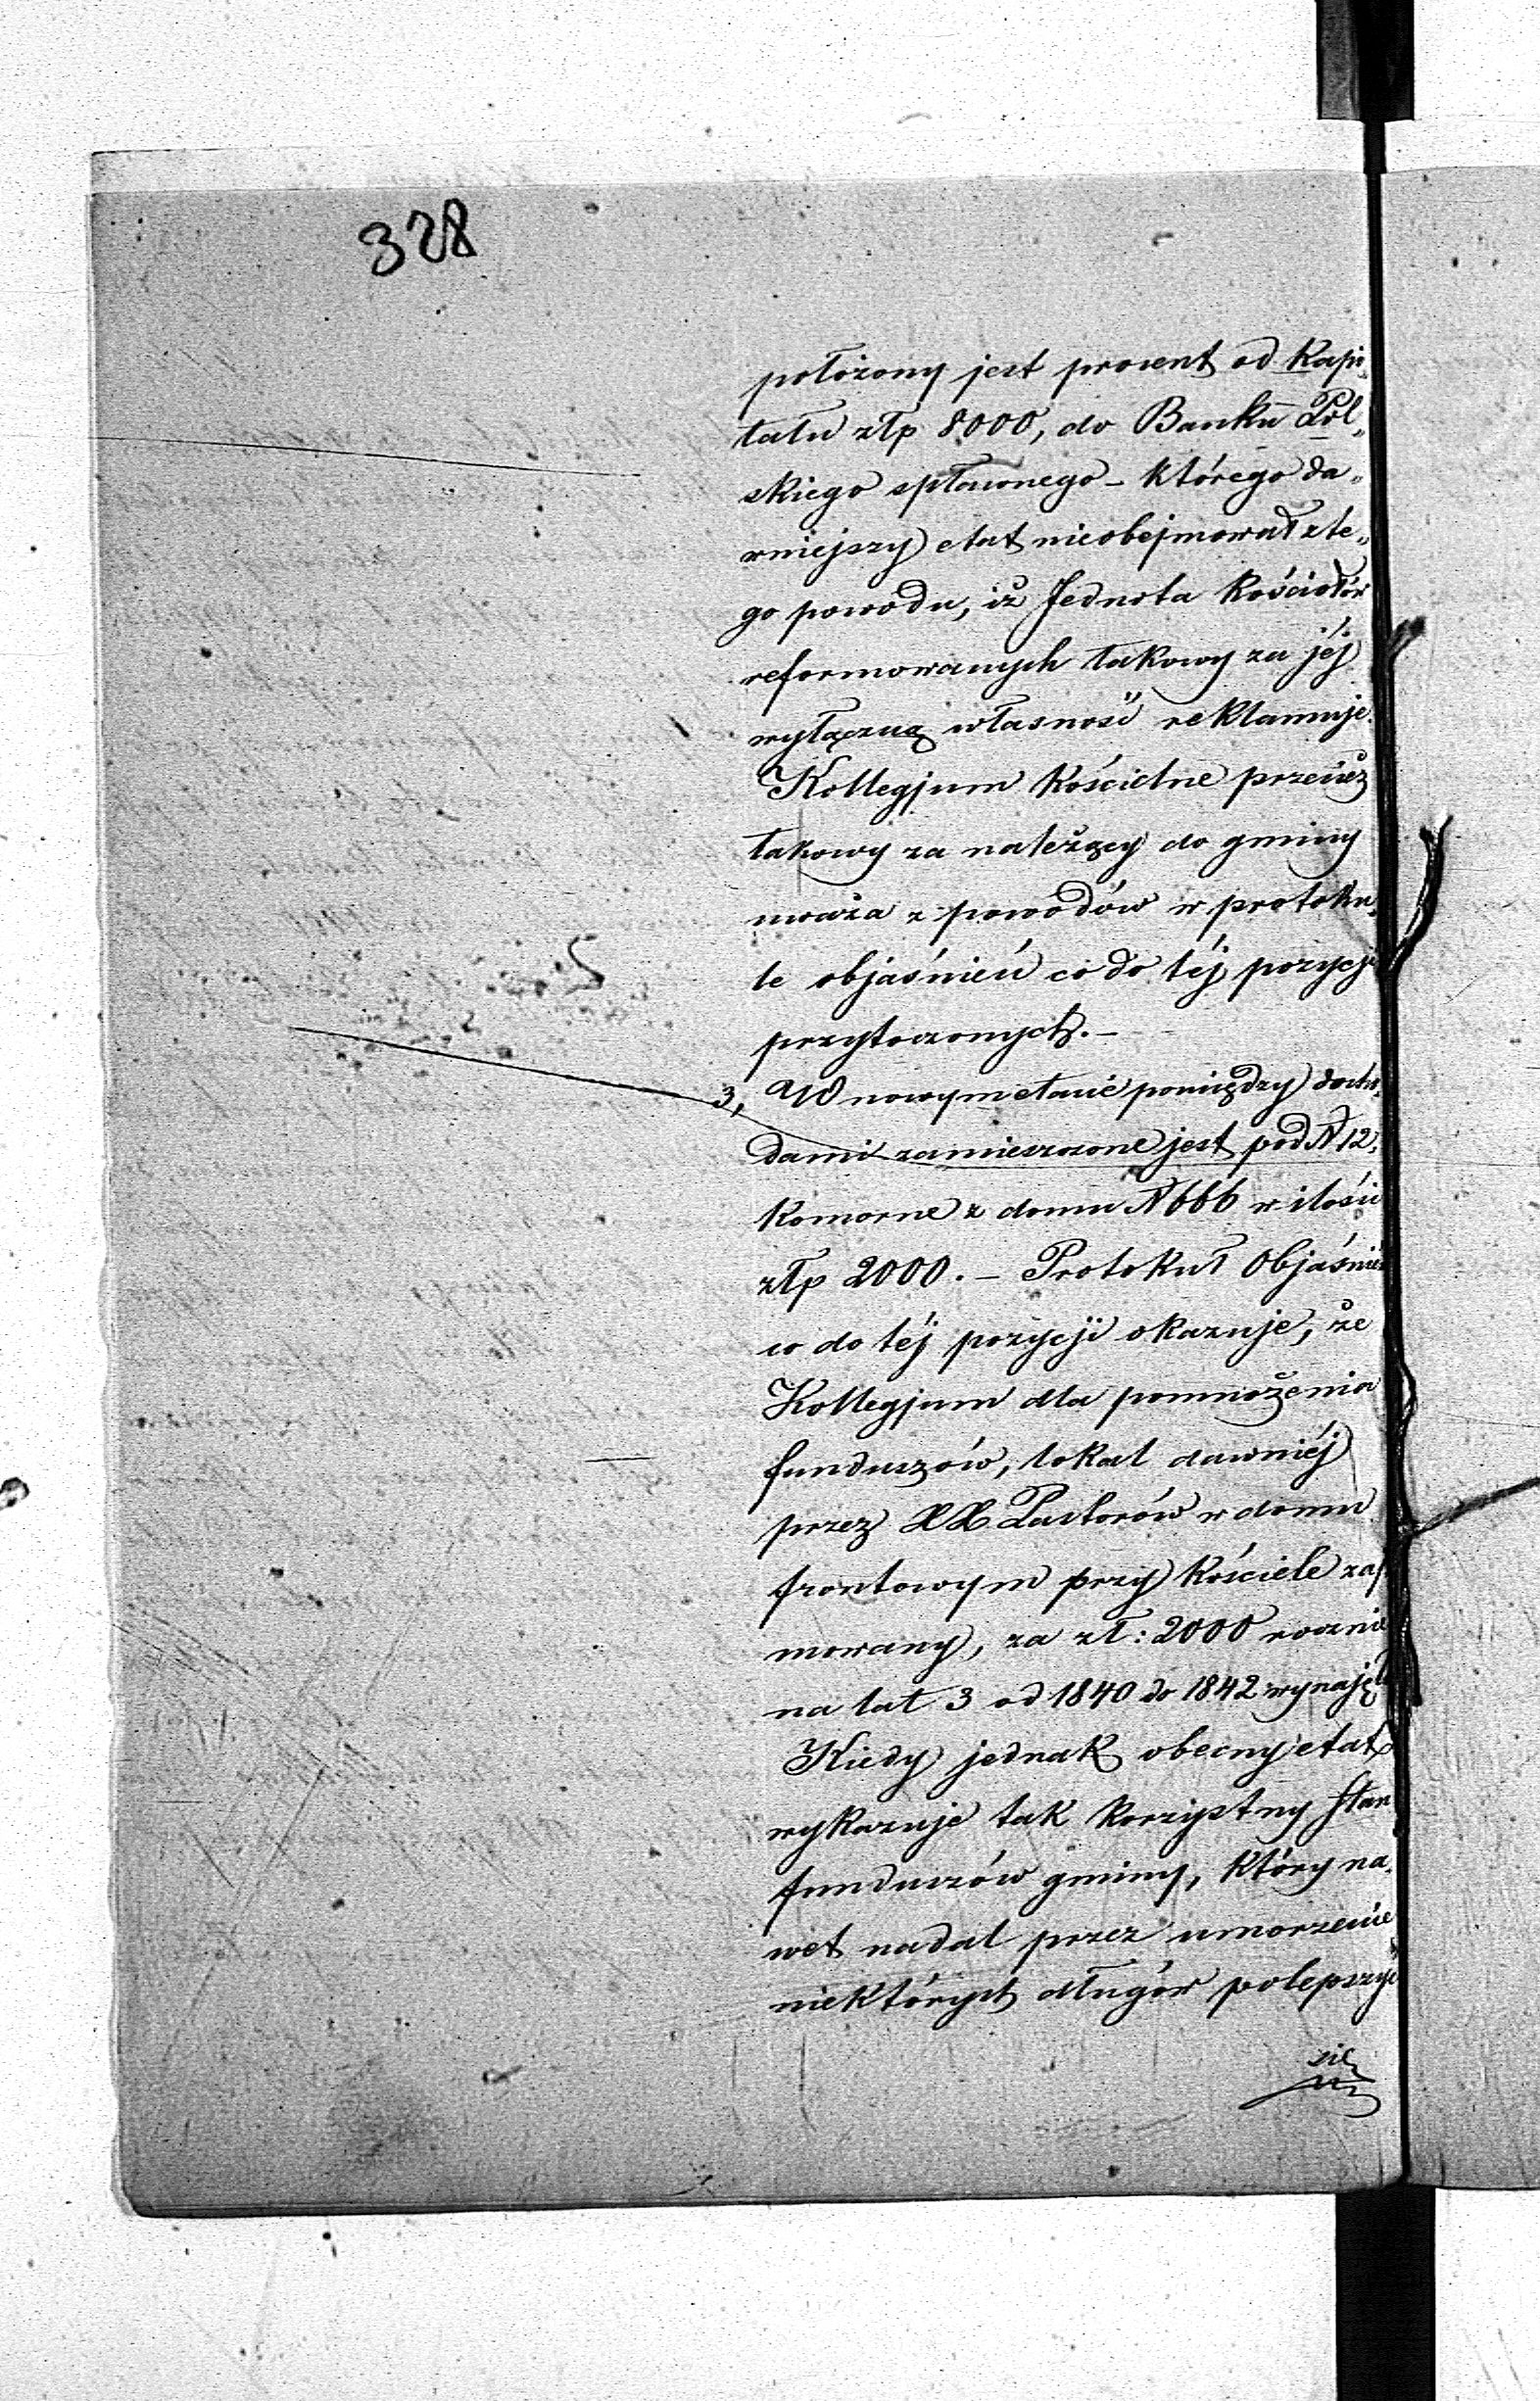 328
położony jest procent od Kapi„
tału złp 8000, do Banku Pol„
skiego spłaconego – którego da„
wniejszy etat nieobejmował zte„
go powodu, iż Jednota Kościołów
reformowanych takowy za jéj
wyłączną własność reklamuje.
Kollegjum Kościelne przeciéż
takowy za należący do gminy
uważa z powodów w protoku„
le objaśnień co do téj pozycji
przytoczonych. –
3, W nowym etacie pomiędzy docho„
dami zamieszczone jest pod N 12.
Komorne z domu N 666 w ilości
złp 2000. – Protokuł Objaśnień
co do téj pozycji okazuje, że
Kollegjum dla pomnożenia
funduszów, lokal dawniéj
przez XX Pastorów w domu
frontowym przy Kościele zaj
mowany, za zł: 2000 rocznie
na lat 3 od 1840 do 1842 wynajęło
Kiedy jednak obecny etat
wykazuje tak korzystny stan
funduszów gminy, który na„
wet nadal przez umorzenie
niektórych długów polepszyć
się